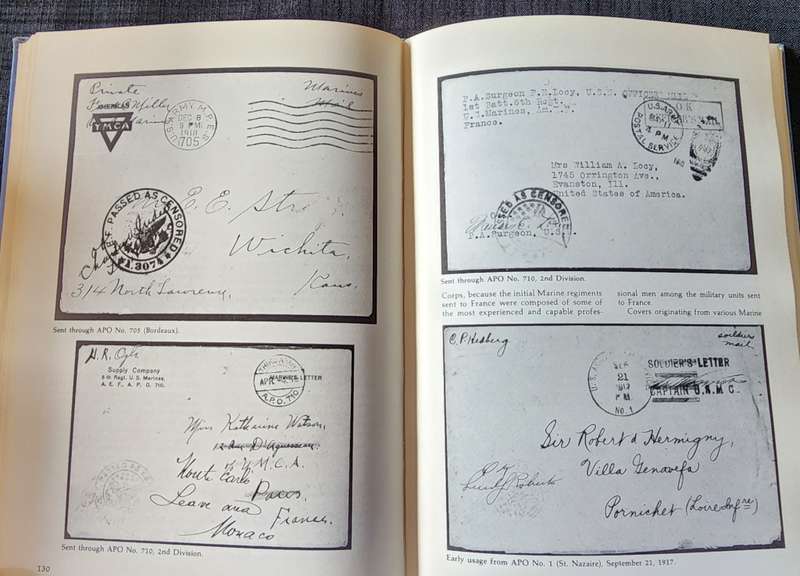 Private
Marines
Mail
YMCA
U.S. ARMY M.P.E.S.
DEC 8
PM
1918
705
A.E.F. PASSED AS CENSORED
A.3074
E. E.
Wichita,
314 North Lawrence, Kans.
Sent through APO No. 705 (Bordeaux).
Supply Company
U.S. Marines,
A. E. F., A. P. O. 710.
MARINE'S LETTER
APR
A.P.O. 710
Miss Katharine Watson,
Y.M.C.A.
Monte Carlo Paris.
Leave area France
Monaco
Sent through APO No. 710, 2nd Division.
130
P.A. Surgeon
1st Batt. 6th Regt.
U.S. Marines, Am.
France.
O.K.
U.S. ARMY
POSTAL SERVICE
P.M.
Mrs William A. Locy,
1745 Orrington Ave.,
Evanston, Ill.
United States of America.
PASSED AS CENSORED
P.A. Surgeon, U.S.
Sent through APO No. 710, 2nd Division.
Corps, because the initial Marine regiments
sent to France were composed of some of
the most experienced and capable profes-
sional men among the military units sent
to France.
Covers originating from various Marine
C. P. Hedberg
soldier
mail
SEP
21
1917
P.M.
NO. 1
SOLDIER'S LETTER
CAPTAIN U.S.M.C.
Sir Robert d Hermigny,
Villa Genavefa
Pornichet (Loire Infre)
Early usage from APO No. 1 (St. Nazaire), September 21, 1917.